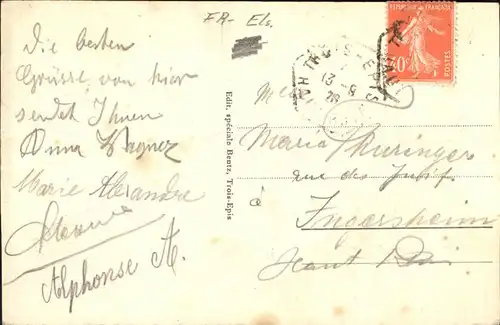 FR- Els.
Die besten
Grüsse von hier
sendet Ihnen
Anna Wagner
Marie Alexandre
Alphonse A.
Edit. spéciale Bentz, Trois-Epis
TROIS-EPIS
HAUT-RHIN
REPUBLIQUE FRANÇAISE
40c
POSTES
Maria Thuringer
rue des Juifs
à
Ingersheim
Haut Rhin